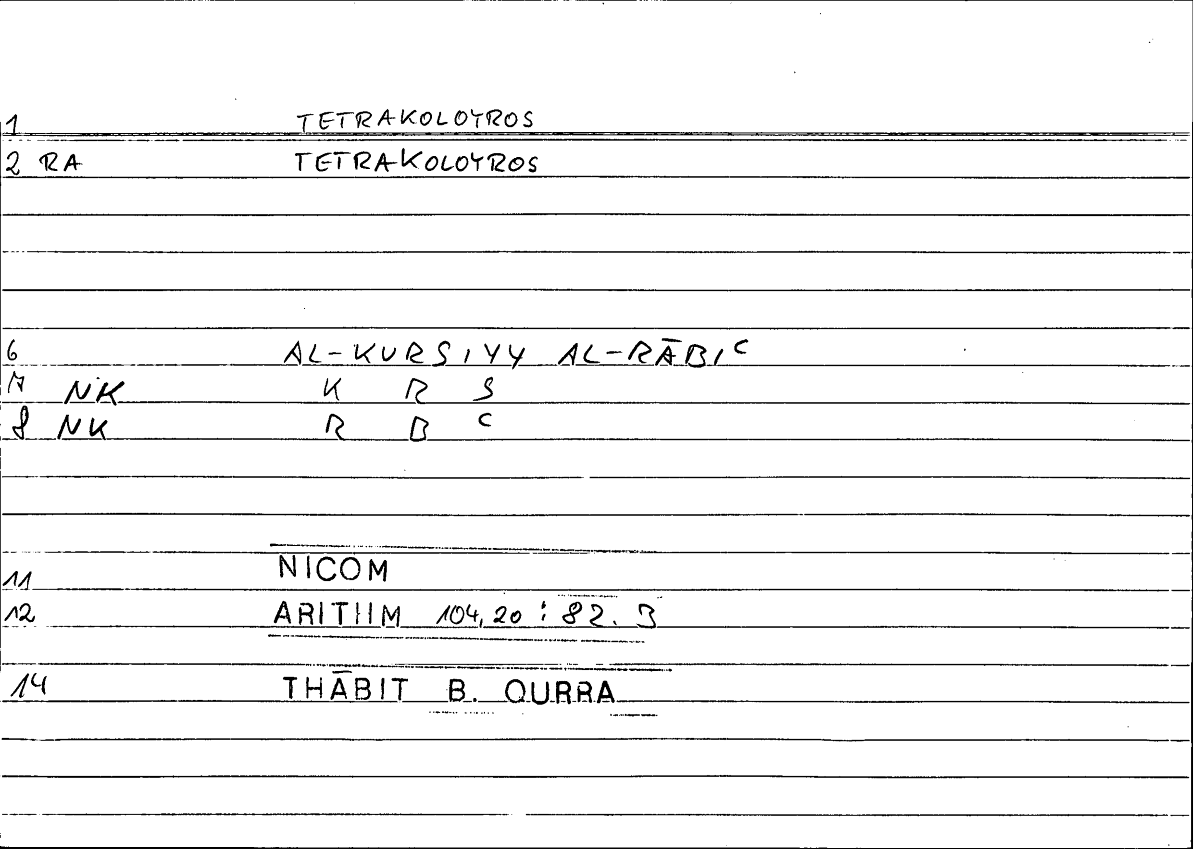 1 TETRAKOLOYROS
2 RA TETRAKOLOYROS
6 AL-KURSIYY AL-RĀBIC
7 NK K R S
8 NK R B C
11 NICOM
12 ARITHM 104,20 : 82.3
14 THĀBIT B. QURRA